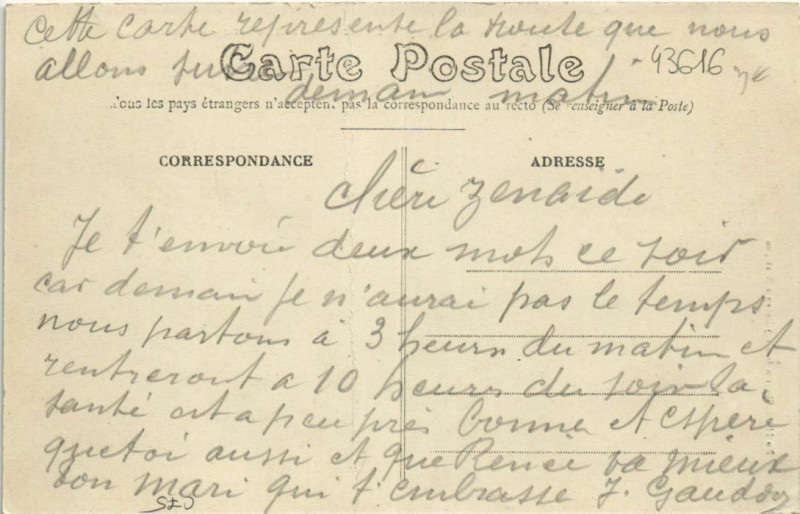 Cette Carte représente la route que nous
allons suivre
Carte Postale
43616
demain matin
Tous les pays étrangers n'acceptent pas la correspondance au recto (Se renseigner à la Poste)
CORRESPONDANCE
ADRESSE
chère Zenaide
Je t'envoie deux mots ce soir
car demain je n'aurai pas le temps
nous partons à 3 heures du matin et
rentreront a 10 heures du soir la
santé est a peu près bonne et espère
que toi aussi et que Renée va mieux
ton mari qui t'embrasse J.